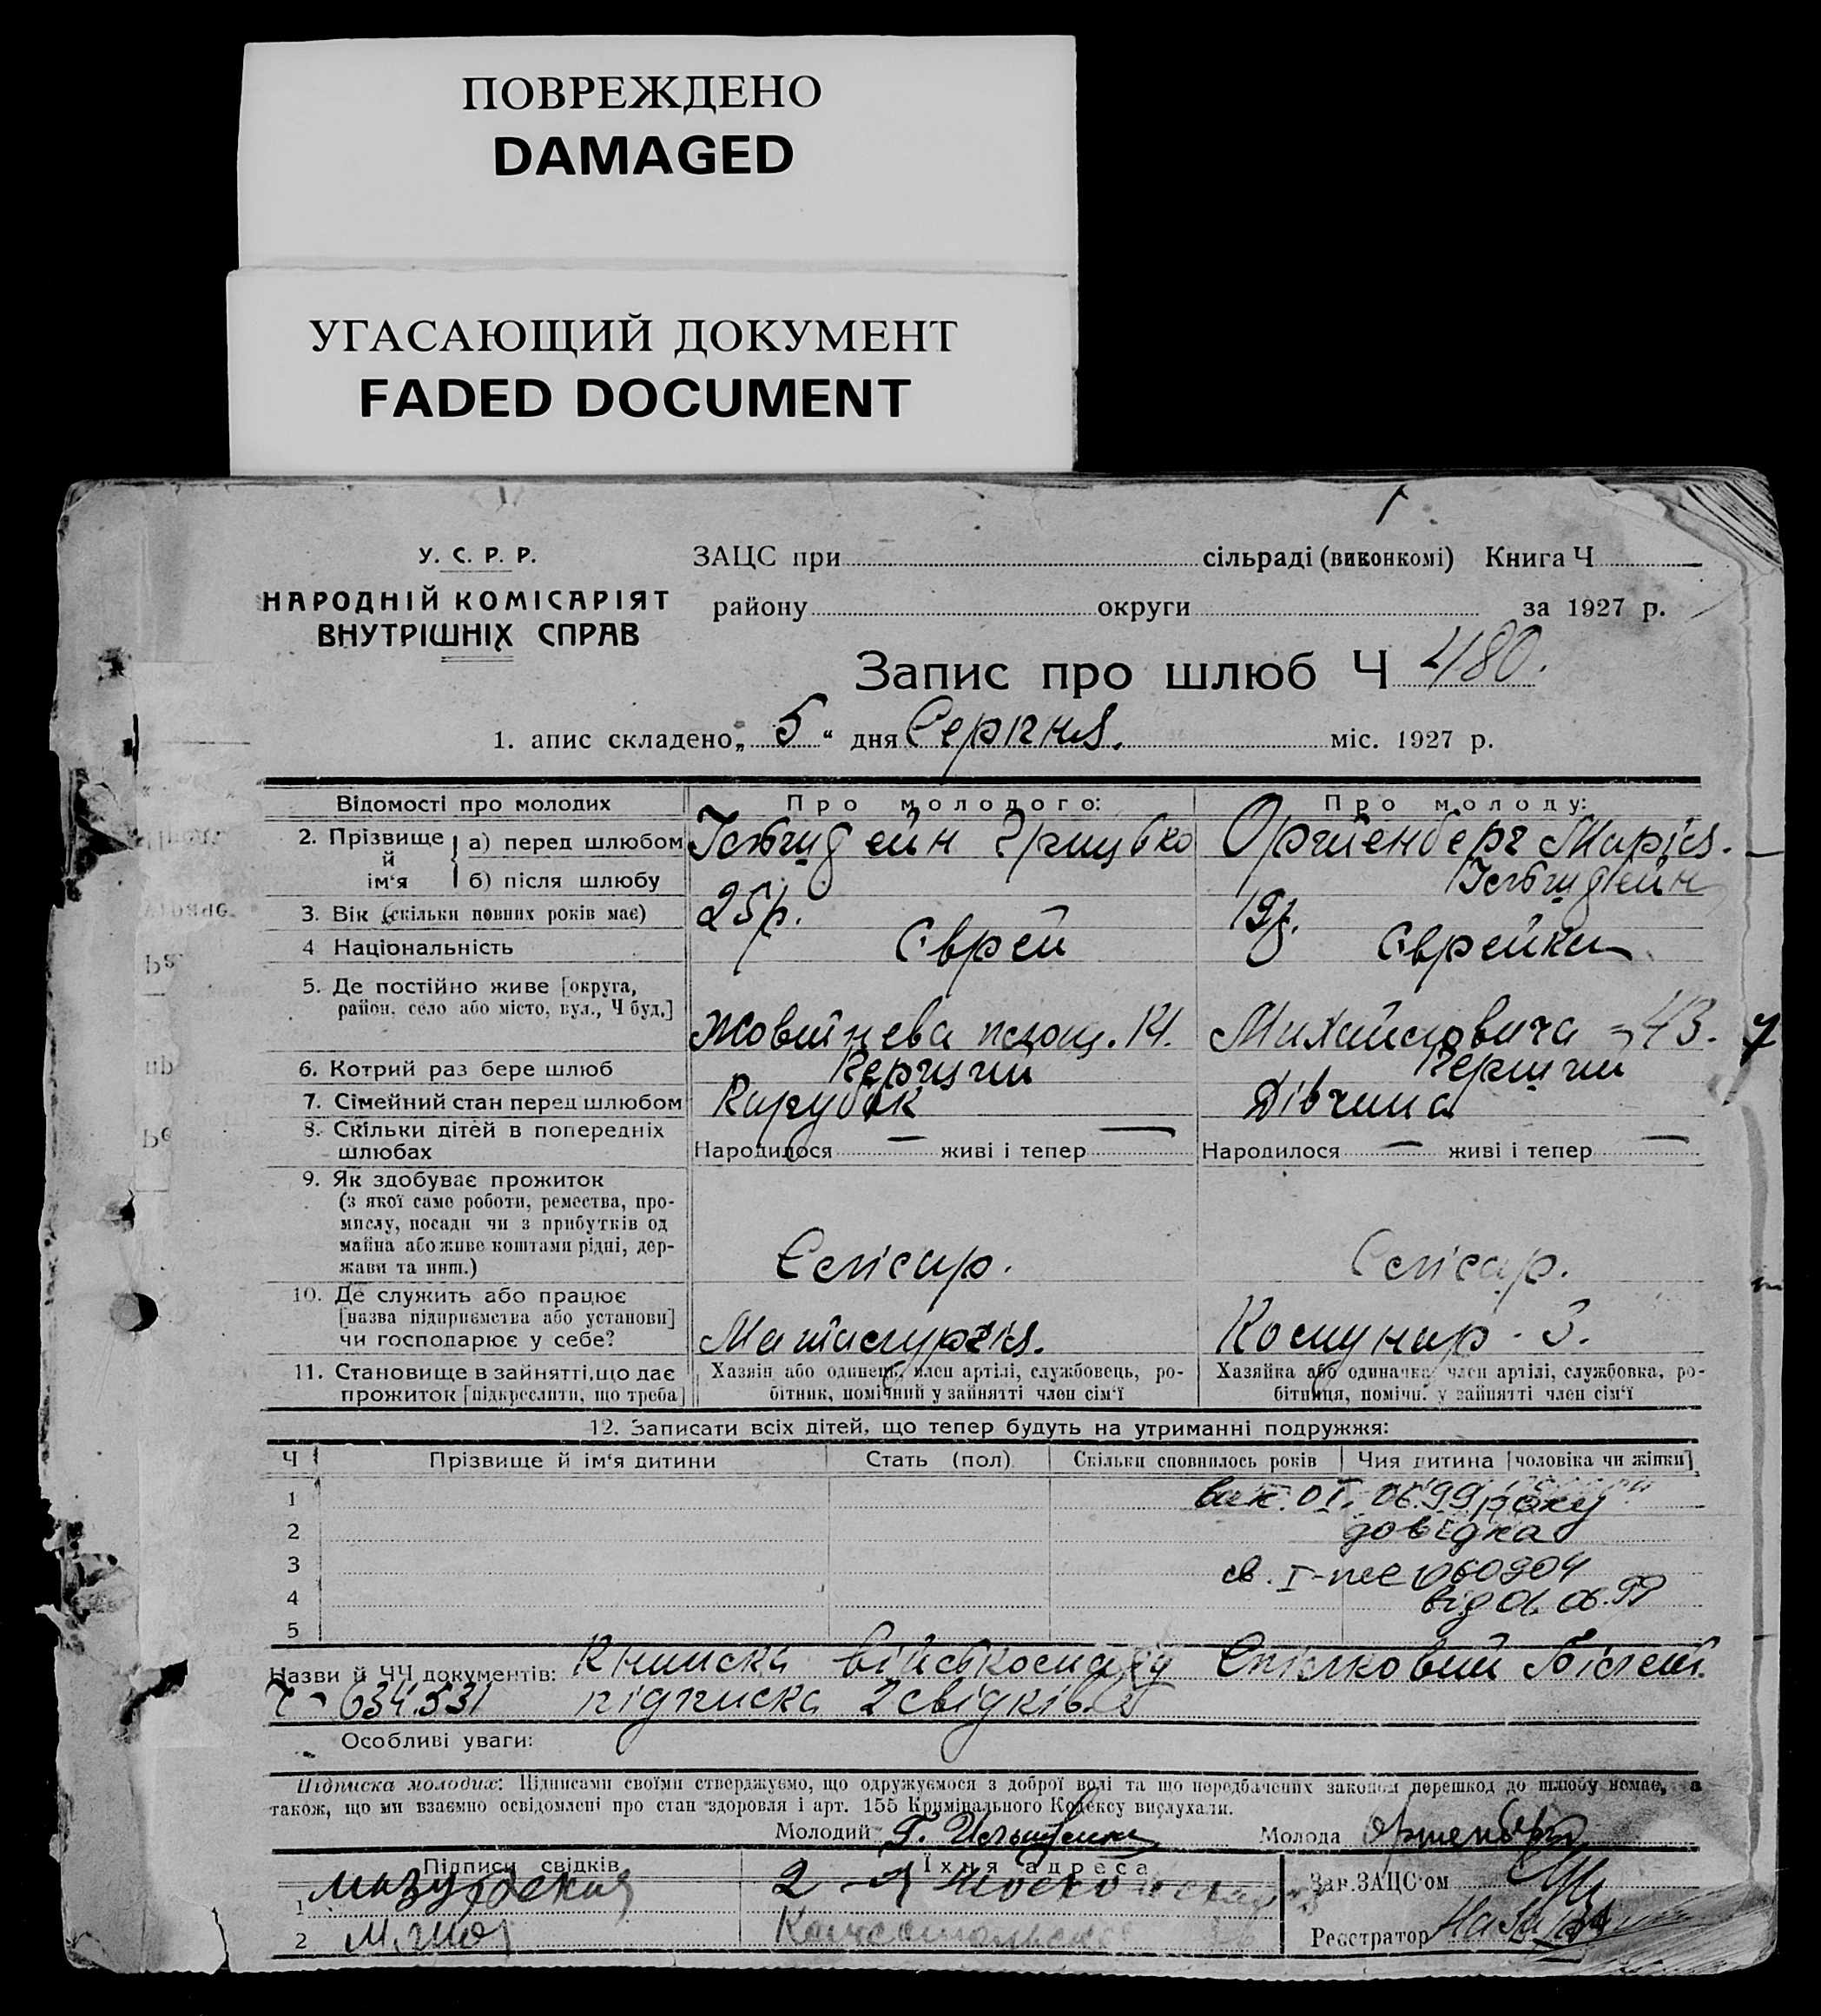 ПОВРЕЖДЕНО
DAMAGED
УГАСАЮЩИЙ ДОКУМЕНТ
FADED DOCUMENT
У. С. Р. Р.
НАРОДНІЙ КОМІСАРІЯТ
ВНУТРІШНІХ СПРАВ
ЗАЦС при сільраді (виконкомі) Книга Ч
району округи за 1927 р.
Запис про шлюб Ч 480.
1. апис складено „ 5 “ дня Серпня. міс. 1927 р.
Відомості про молодих Про молодого: Про молоду:
2. Прізвище й ім‘я а) перед шлюбом Грицько Марія.
б) після шлюбу
3. Вік (скільки повних років має) 25 р. 19 р.
4 Національність Єврей Єврейка
5. Де постійно живе [округа,
район, село або місто, вул., Ч буд.] Жовтнева площ. 14. 43.
6. Котрий раз бере шлюб Перший Перший
7. Сімейний стан перед шлюбом Парубок Дівчина
8. Скільки дітей в попередніх
шлюбах Народилося — живі і тепер — Народилося — живі і тепер —
9. Як здобуває прожиток
(з якої саме роботи, ремества, про-
мислу, посади чи з прибутків од
майна або живе коштами рідні, дер-
жави та инш.) Слюсар. Слюсар.
10. Де служить або працює
[назва підприємства або установи]
чи господарює у себе? Комунар. 3.
11. Становище в зайнятті, що дає
прожиток [підкреслити, що треба]
Хазяін або одинець, член артілі, службовець, ро-
бітник, помічний у зайнятті член сім‘ї
Хазяйка або одиначка член артілі, службовка, ро-
бітниця, помічн. у зайнятті член сім‘ї
12. Записати всіх дітей, що тепер будуть на утриманні подружжя:
Ч Прізвище й ім‘я дитини Стать (пол) Скільки сповнилось років Чия дитина [чоловіка чи жінки]
1 06.99 року
2 довідка
3 св. I- 060904
4 від 01.06.99
5
Назви й ЧЧ документів: Книжка Спілковий білет.
Ч- 634.531 підписка 2 свідків
Особливі уваги:
Підписка молодих: Підписами своїми стверджуємо, що одружуємося з доброї волі та що передбачених законом перешкод до шлюбу немає, а
також, що ми взаємно освідомлені про стан здоровля і арт. 155 Кримінального Кодексу вислухали.
Молодий Молода
Підписи свідків Їхня адреса Зав. ЗАЦС‘ом
1
2 Реєстратор